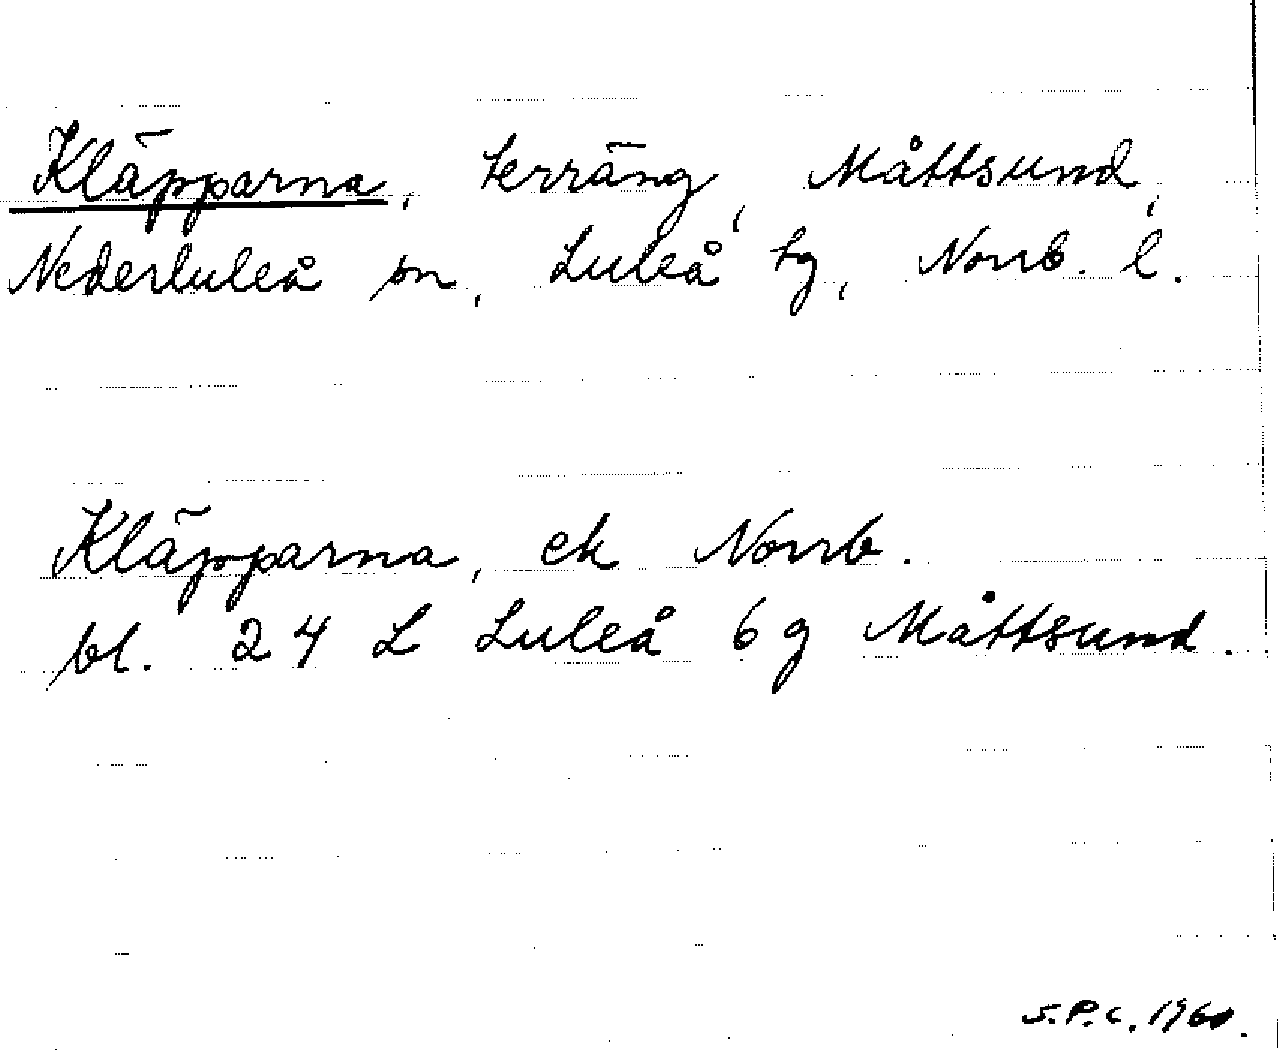 Kläpparna, terräng, Måttsund,
Nederluleå sn, Luleå tg, Norrb. l.
Kläpparna, ek Norrb.
bl. 24 L Luleå 6g Måttsund.
S.P.C. 1960.